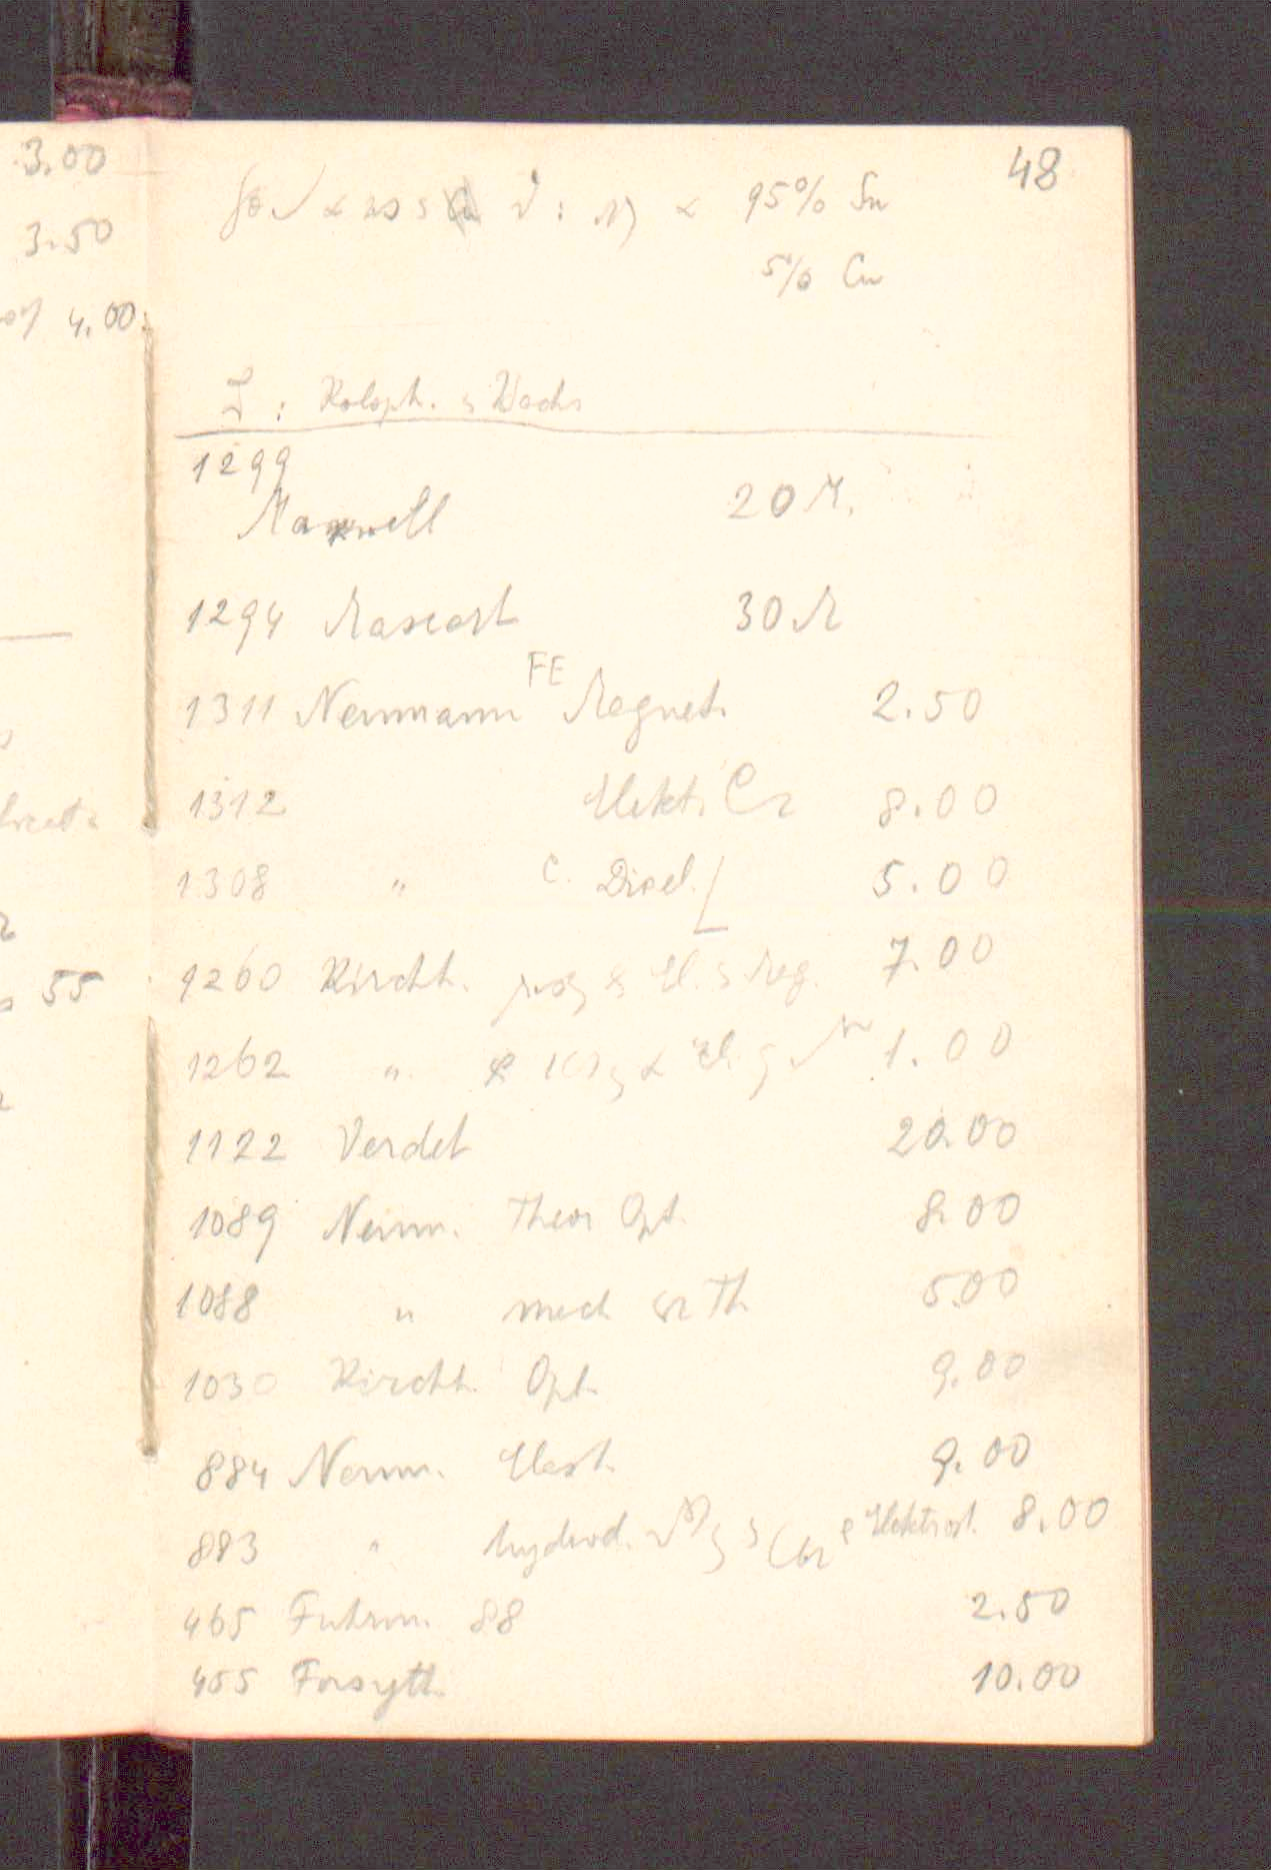 3.00
3.50
4.00
55
48
95% Sn
5% Cu
: Koloph. Wachs
1299
Maxwell 20 M.
1294 Mascart 30 M
FE
1311 Neumann Magnet. 2.50
1312 Elekt. 8.00
1308 " C. Diel. 5.00
1260 Kirchh. El. Mag. 7.00
1262 " El. 1.00
1122 Verdet 20.00
1089 Neum. Theor Opt. 8.00
1088 " mech Th. 5.00
1030 Kirchh. Opt. 9.00
884 Neum. Elast. 9.00
883 " hydrod. Elektrost. 8.00
465 Fuhrm. 88 2.50
455 Forsyth. 10.00